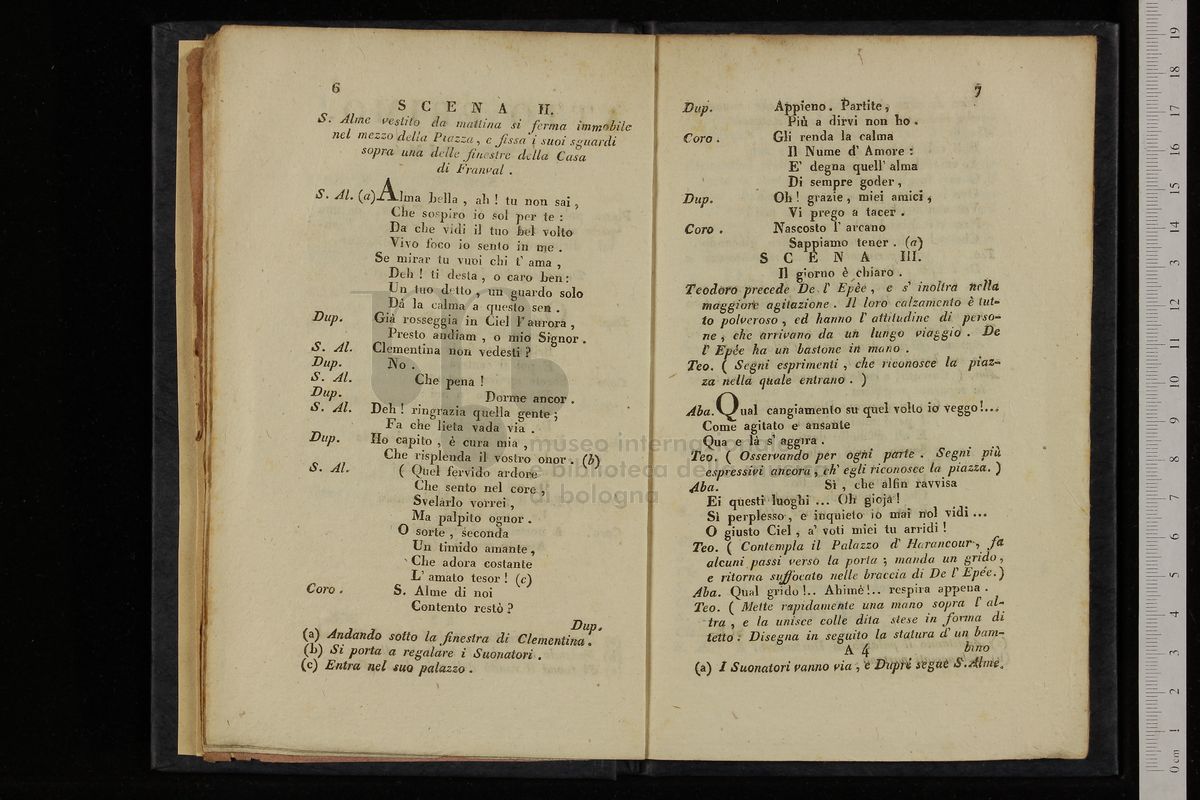 6
SCENA II.
S. Alme vestito da mattina si ferma immobile
nel mezzo della Piazza, e fissa i suoi sguardi
sopra una delle finestre della Casa
di Franval.
S. Al. (a) Alma bella, ah! tu non sai,
Che sospiro io sol per te:
Da che vidi il tuo bel volto
Vivo foco io sento in me.
Se mirar tu vuoi chi t' ama,
Deh! ti desta, o caro ben:
Un tuo detto, un guardo solo
Dà la calma a questo sen.
Dup. Già rosseggia in Ciel l'aurora,
Presto andiam, o mio Signor.
S. Al. Clementina non vedesti?
Dup. No.
S. Al. Che pena!
Dup. Dorme ancor.
S. Al. Deh! ringrazia quella gente;
Fa che lieta vada via.
Dup. Ho capito, è cura mia,
Che risplenda il vostro onor. (b)
S. Al. ( Quel fervido ardore
Che sento nel core,
Svelarlo vorrei,
Ma palpito ognor.
O sorte, seconda
Un timido amante,
Che adora costante
L' amato tesor! (c)
Coro. S. Alme di noi
Contento restò?
Dup.
(a) Andando sotto la finestra di Clementina.
(b) Si porta a regalare i Suonatori.
(c) Entra nel suo palazzo.
7
Dup. Appieno. Partite,
Più a dirvi non ho.
Coro. Gli renda la calma
Il Nume d' Amore:
E' degna quell' alma
Di sempre goder,
Dup. Oh! grazie, miei amici,
Vi prego a tacer.
Coro. Nascosto l' arcano
Sappiamo tener. (a)
SCENA III.
Il giorno è chiaro.
Teodoro precede De l' Epèe, e s' inoltra nella
maggiore agitazione. Il loro calzamento è tut-
to polveroso, ed hanno l' attitudine di perso-
ne, che arrivano da un lungo viaggio. De
l' Epée ha un bastone in mano.
Teo. ( Segni esprimenti, che riconosce la piaz-
za nella quale entrano. )
Aba. Qual cangiamento su quel volto io veggo!...
Come agitato e ansante
Qua e là s' aggira.
Teo. ( Osservando per ogni parte. Segni più
espressivi ancora, ch' egli riconosce la piazza. )
Aba. Sì, che alfin ravvisa
Ei questi luoghi ... Oh gioja!
Sì perplesso, e inquieto io mai nol vidi ...
O giusto Ciel, a' voti miei tu arridi!
Teo. ( Contempla il Palazzo d' Harancour, fa
alcuni passi verso la porta; manda un grido,
e ritorna suffocato nelle braccia di De l' Epée.)
Aba. Qual grido!.. Ahimè!.. respira appena.
Teo. ( Mette rapidamente una mano sopra l' al-
tra, e la unisce colle dita stese in forma di
tetto: Disegna in seguito la statura d' un bam-
A 4 bino
(a) I Suonatori vanno via, e Dupré segue S. Alme.
museo internazionale
e biblioteca della musica
di bologna
0 cm 1 2 3 4 5 6 7 8 9 10 11 12 13 14 15 16 17 18 19